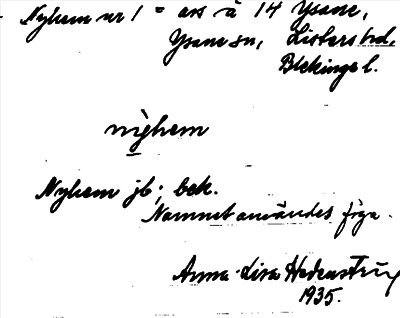 Nyhem nr 1 = avs à 14 Ysane,
Ysane sn, Listers hd,
Blekinge l.
nỳhem
Nyhem jb; bek.
Namnet användes föga.
Anna-Lisa Hedenström
1935.